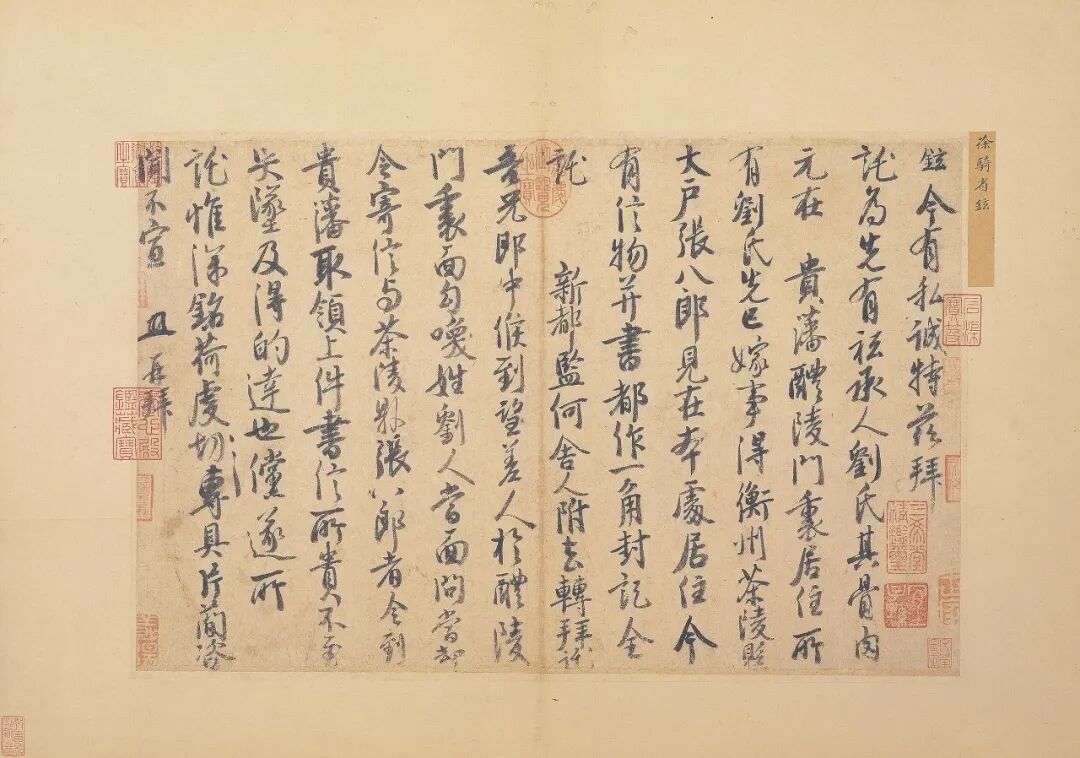 徐騎省鉉
鉉今有私誠特茲拜
託為先有祗承人劉氏其骨肉
元在 貴藩醴陵門裏居住所
有劉氏先已嫁事得衡州茶陵縣
大戶張八郎見在本處居住今
有信物并書都作一角封記全
託 新都監何舍人附去轉拜託
吾兄郎中候到望差人於醴陵
門裏面勾喚姓劉人當面問當卻
令寄信与茶陵縣張八郎者令到
貴藩取領上件書信所貴不至
失墜及得的達也儻遂所
託惟深銘荷虔切專具片簡咨
聞不宣 再拜
三希堂精鑑璽
宜子孫
石渠寶笈